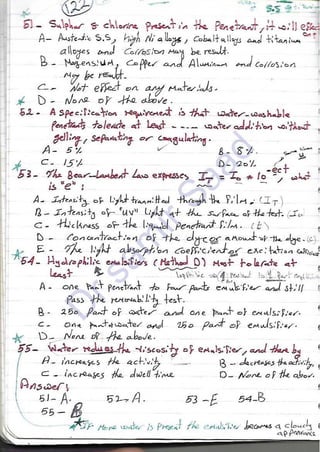 122
51- Sulphur & chlorine present in the Penetrant, it will effect
A- Austentic S.S, high Ni alloys, Cobalt alloys and titanium
alloyes and Corrosion may be result.
B- Magensium, Copper and Aluminum and corrosion
may be result.
C- Not effect on any materials.
D- None of the above.
52- A specification requirement is that water-washable
Penetrants tolerate at least ---- water addition without
gelling, separating or coagulating.
A- 5% B- 8%
C- 15% D- 20%
53- The Bear-Lambert law expresses IT = I0 * 10^-ect, what
is "e":
A- Intensity of light transmitted through the film. (IT)
B- Intensity of "UV" light at the surface of the test.
C- thickness of the liquid penetrant film. (t)
D- concentraction of the dye or amount of the dye. (c)
E- The light absorption Coefficient or
54- Hydrophilic emulsifiers (Method D) Must tolerate at
least
A- one Part penetrant to four parts emulsifier and still
pass the removability test.
B- 250 Part of water and one part of emulsifier.
C- one part water and 250 part of emulsifier.
D- None of the above.
55- Water reduces the viscosity of emulsifier, and there by
A- increases the activity B- decreases the activity
C- increases the dwell time D- None of the above.
Answers
51-A. 52-A. 53-E 54-B
55- B
IF More water is Present the emulsifier becomes a cloudy
appearance